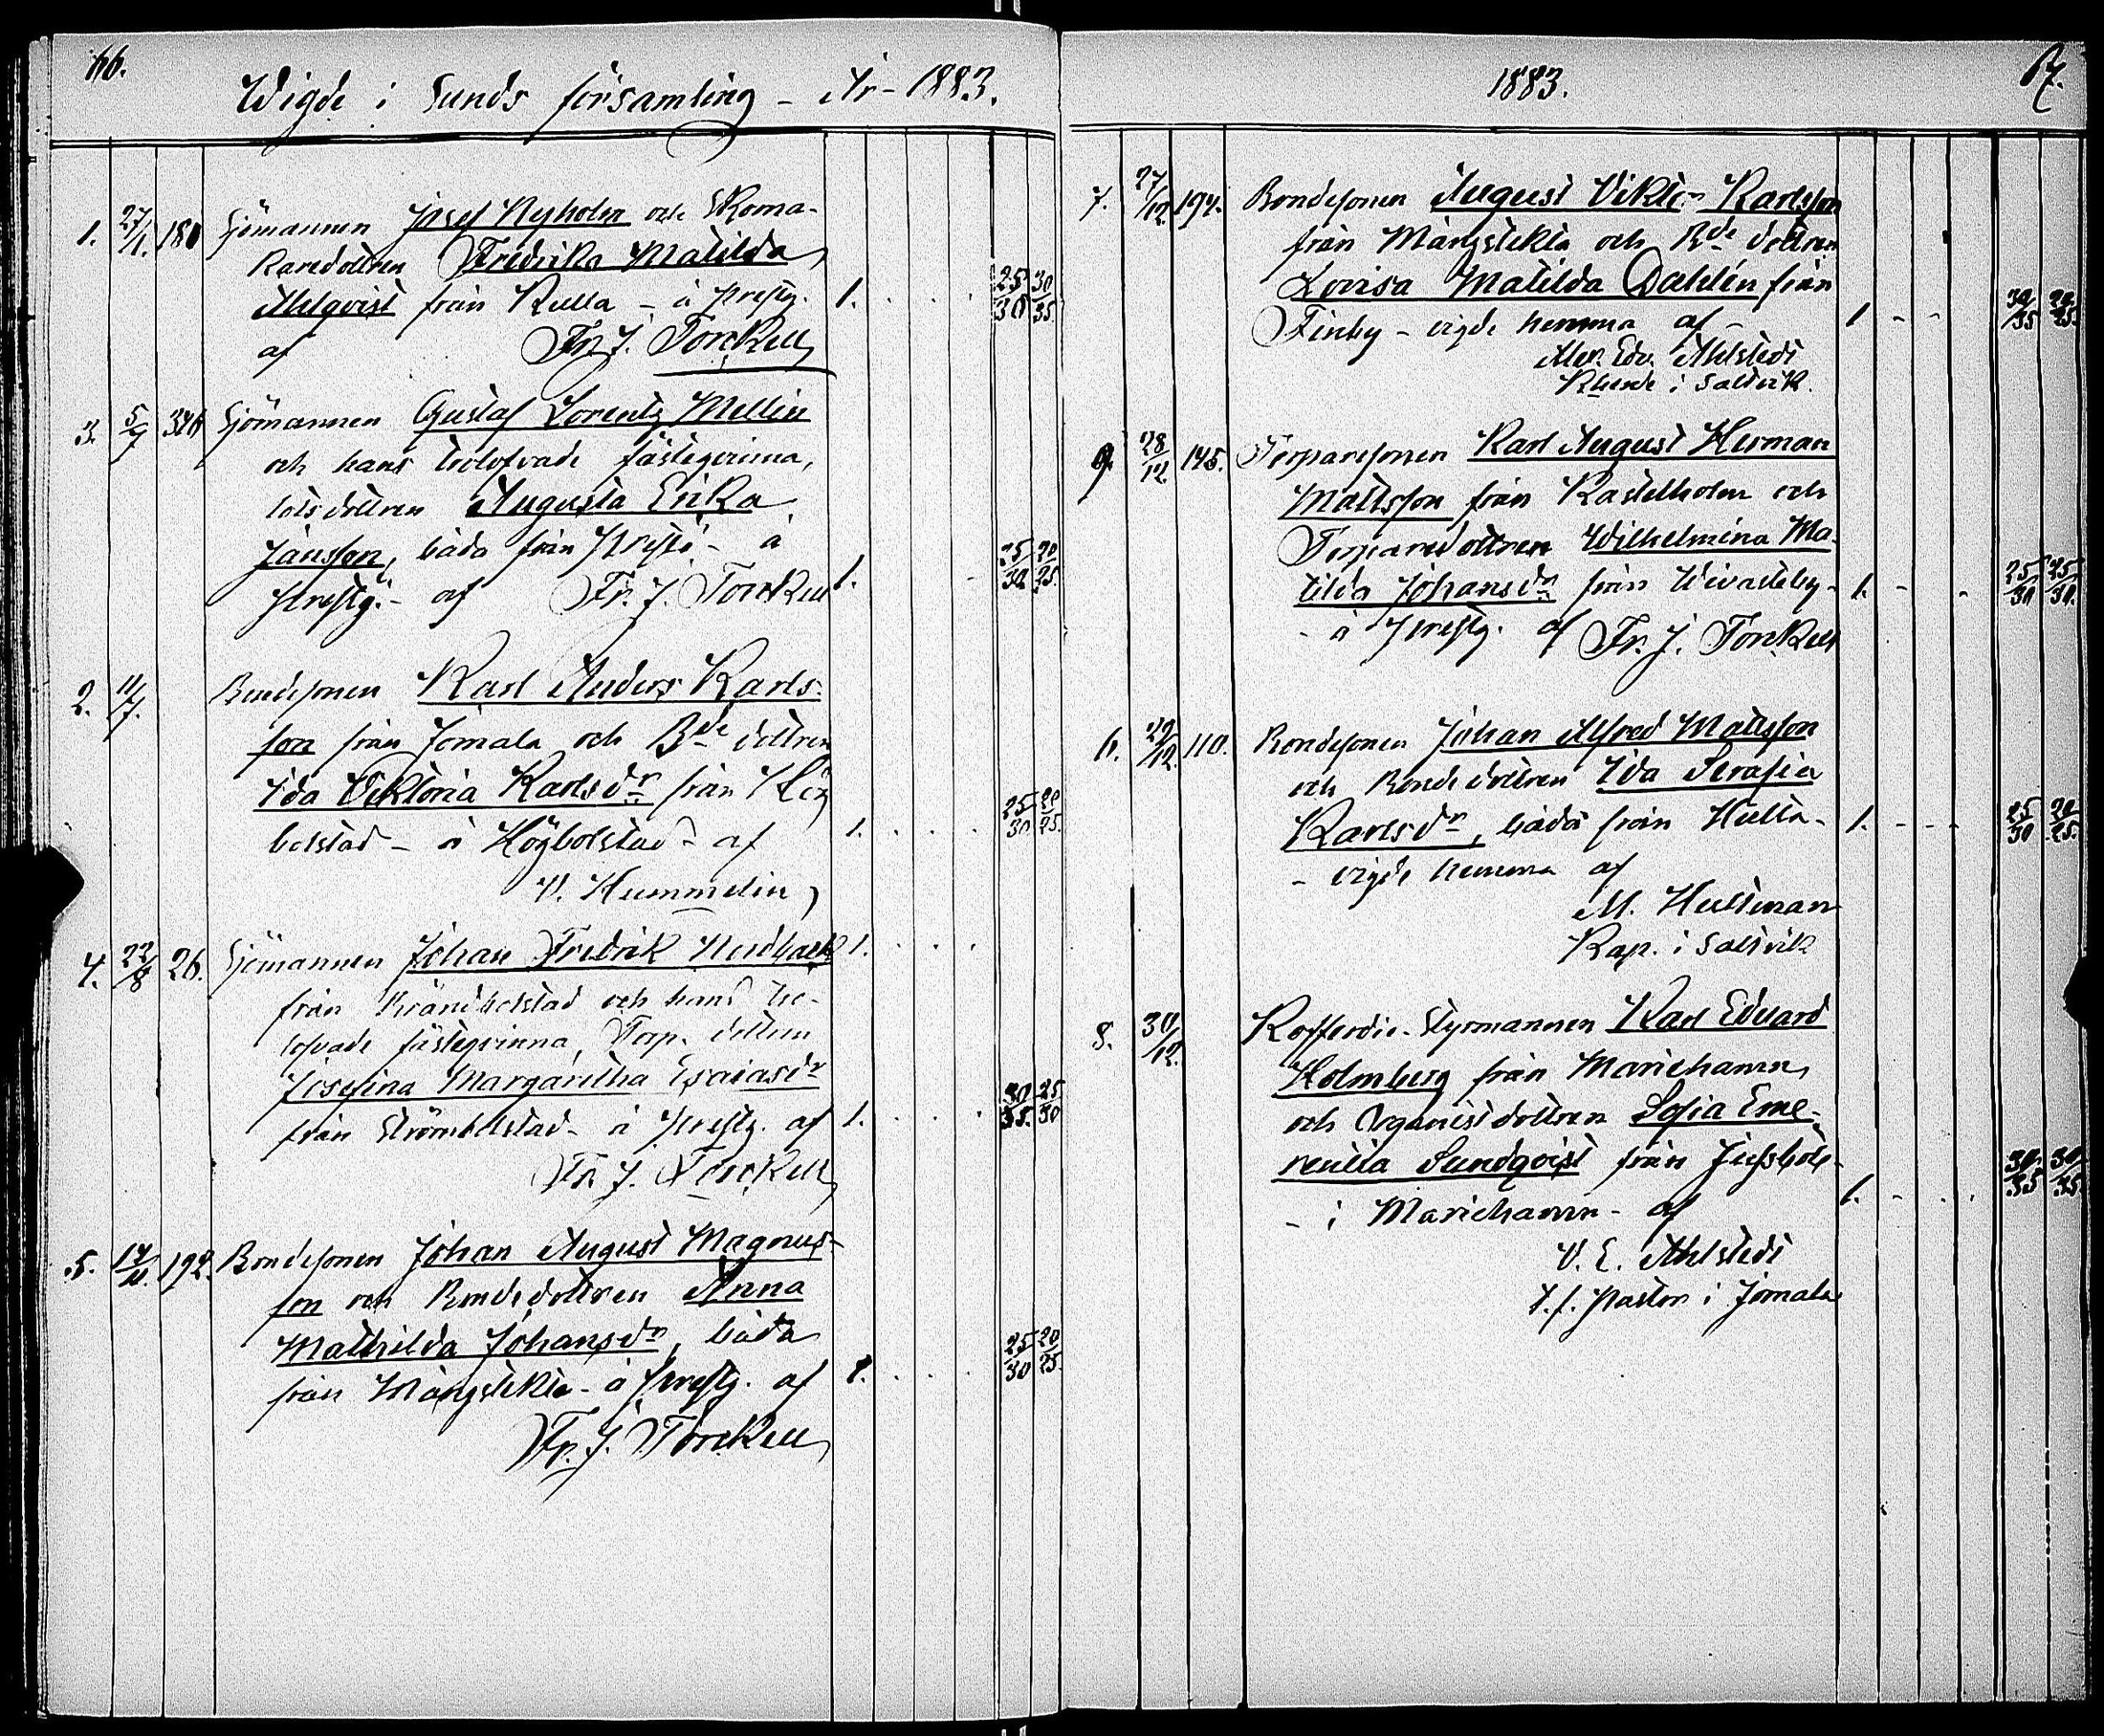 66.
Wigde i Sunds församling - År - 1883.
1. 27/1. 180 Sjömannen Josef Nyholm och Skoma-
karedottren Fredrika Matilda
Ahlqvist från Kulla - å Prestg. 1. 25/30 30/35
af Fr. J. Torckell
3. 5/7 Sjömannen Gustaf Lorentz Mellin
och hans trolofvade fästeqvinna,
lotsdottren Augusta Erika
Jansson, båda från Prestö - å 25/30 20/25.
Prestg. - af Fr. J. Torckell 1.
2. 11/7. Bondesonen Karl Anders Karls-
son från Jomala och Bde dottren
Ida Viktoria Karlsdr från Hög
bolstad - å Högbolstad - af 1. 25/30 20/25.
V. Hummelin
4. 22/8 26. Sjömannen Johan Fredrik Nordback 1.
från Brändbolstad och hans tro-
lofvade fästeqvinna, Torp. dottren
Josefina Margaretha Esaiasdr
från Strömbolstad - å Prestg. af 1. 30/35. 25/30
Fr. J. Torckell
5. 14/11. 192. Bondesonen Johan August Magnus-
son och Bondedottren Anna
Mathilda Johansdr, båda
från Mångstekta - å Prestg. af 1. 25/30 20/25.
Fr. J. Torckell
1883.
67.
7. 27/12. 194. Bondesonen August Viktor Karlsson
från Mångstekta och Bde dottren
Lovisa Matilda Dahlén från
Finby - vigde hemma af - 1 30/35 20/25.
Alex. Edv. Ahlstedt
Kherde i Saltvik.
9. 28/12 145. Torparesonen Karl August Herman
Mattsson från Kastelholm och
Torparedottren Wilhelmina Ma-
tilda Johansdr från Wivasteby - 1. 25/30 25/30.
- å Prestg. af Fr. J. Torckell
6. 29/12. 110. Bondesonen Johan Alfred Mattsson
och Bondedottren Ida Serafia
Karlsdr, båda från Hulta - 1. 25/30 20/25.
- vigde hemma af
M. Hultman
Kap. i Saltvik
8. 30/12. Kofferdie-Styrmannen Karl Edvard
Holmberg från Mariehamn
och Organistdottren Sofia Eme-
rentia Sundqvist från 30/35 30/35.
- i Mariehamn - af 1.
V. E. Ahlstedt
T. f. Pastor i Jomala